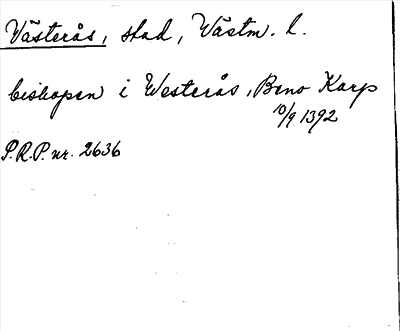 Västerås, stad, Västm. l.
biskopen i Westerås, Beno Karp
10/9 1392
P.R.P. nr. 2636